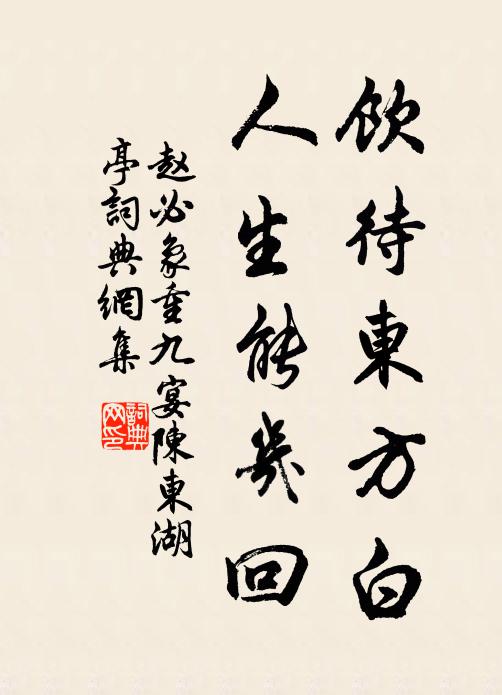 飲待東方白
人生能幾回
赵必象重九宴陳東湖
亭詞典網集
詞典
网印